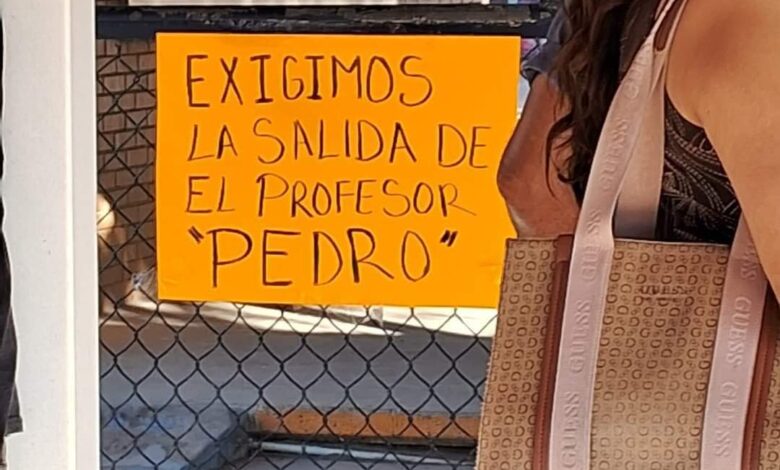 EXIGIMOS
LA SALIDA DE
EL PROFESOR
"PEDRO"
GUESS
GUESS
GUESS
GUESS